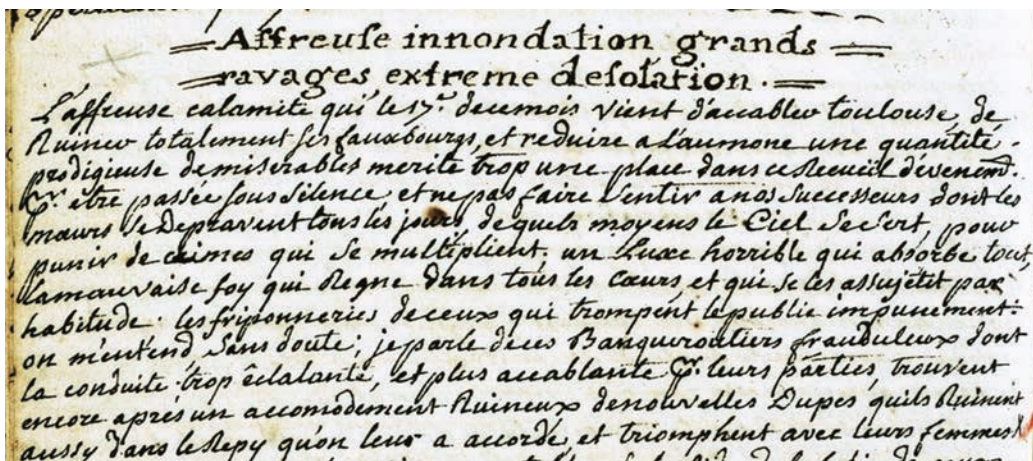 = Affreuse innondation grands =
= ravages extreme desolation . =
L'affreuse calamité qui le 17.e de ce mois vient d'accabler toulouse, de
Ruiner totalement ses fauxbourgs, et reduire a L'aumone une quantité
prodigieuse de miserables merite trop une place dans ce Recueüil d'évenemt.
pr. etre passée sous silence, et ne pas faire sentir a nos successeurs dont les
mœurs se Depravent tous les jours, de quels moyens le Ciel se sert, pour
punir de crimes qui se multiplient. un Luxe horrible qui absorbe tout,
la mauvaise foy qui Regne dans tous les cœurs et qui se les assujetit par
habitude. les friponneries de ceux qui trompent le public impunement.
on m'entend sans doute; je parle de ces Banqueroutiers frauduleux dont
la conduite trop éclatante, et plus accablante pr. leurs parties, trouvent
encore aprés un accomodement Ruineux de nouvelles Dupes quils Ruinent
aussy dans le Repy qu'on leur a accordé, et triomphent avec leurs femmes